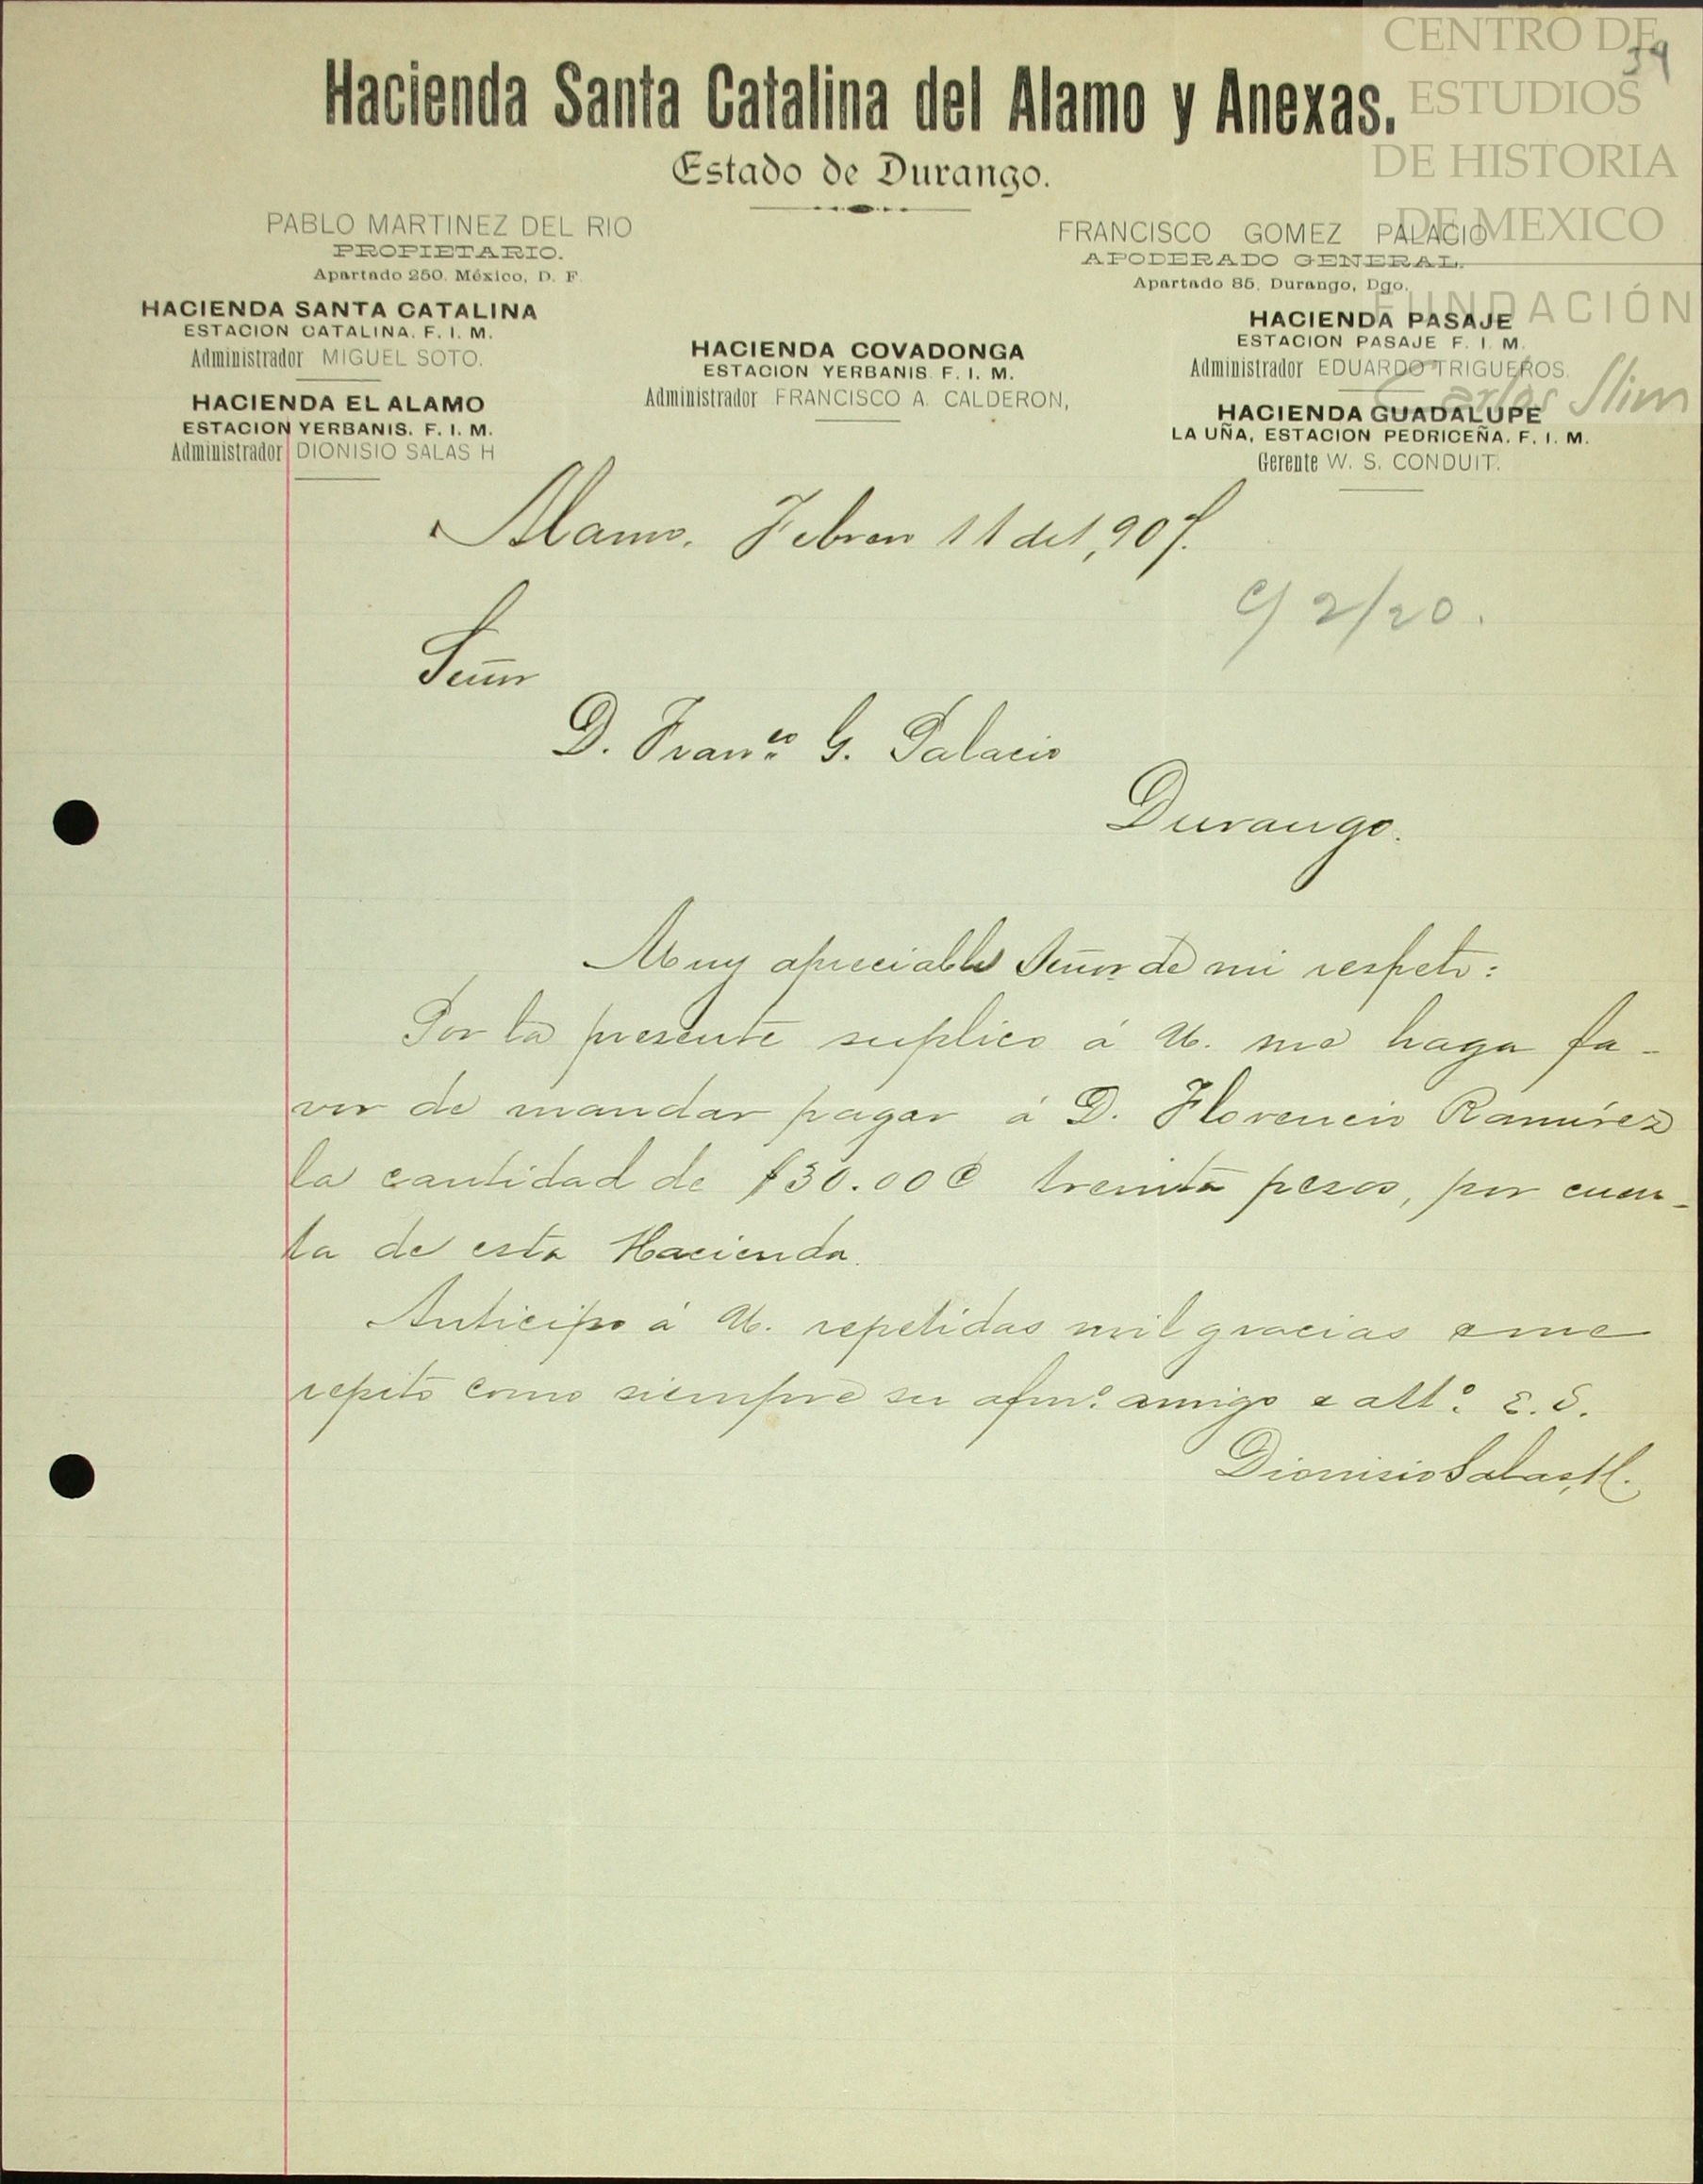 CENTRO DE
ESTUDIOS
DE HISTORIA
DE MEXICO
FUNDACIÓN
Carlos Slim
39
Hacienda Santa Catalina del Alamo y Anexas.
Estado de Durango.
PABLO MARTINEZ DEL RIO
PROPIETARIO.
Apartado 250. México, D. F.
FRANCISCO GOMEZ PALACIO
APODERADO GENERAL.
Apartado 85, Durango, Dgo.
HACIENDA SANTA CATALINA
ESTACION CATALINA. F. I. M.
Administrador MIGUEL SOTO.
HACIENDA EL ALAMO
ESTACION YERBANIS. F. I. M.
Administrador DIONISIO SALAS H
HACIENDA COVADONGA
ESTACION YERBANIS. F. I. M.
Administrador FRANCISCO A. CALDERON,
HACIENDA PASAJE
ESTACION PASAJE F. I. M.
Administrador EDUARDO TRIGUEROS.
HACIENDA GUADALUPE
LA UÑA, ESTACION PEDRICEÑA. F. I. M.
Gerente W. S. CONDUIT.
Alamo. Febrero 11 de 1,907.
C/ 2/20.
Señor
D. Franco. G. Palacio
Durango.
Muy apreciable Señor de mi respeto:
Por la presente suplico á U. me haga fa-
vor de mandar pagar á D. Florencio Ramírez
la cantidad de $30.00¢ treinta pesos, por cuen-
ta de esta Hacienda.
Anticipo á U. repetidas mil gracias e me
repito como siempre su afmo. amigo e atto. S. S.
Dionisio Salas, H.